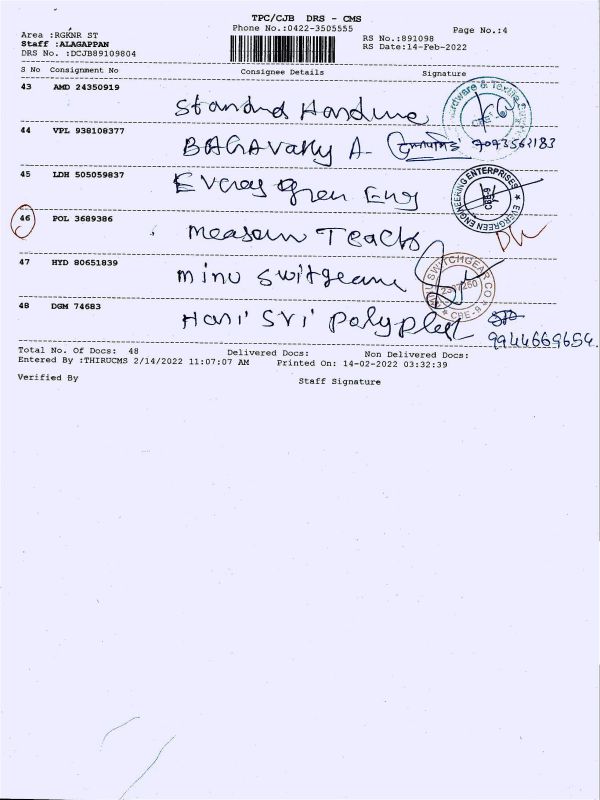 TPC/CJB DRS - CMS
Phone No.:0422-3505555
Page No.:4
Area :RGKNR ST
Staff :ALAGAPPAN
DRS No. :DCJB89109804
RS No.:891098
RS Date:14-Feb-2022
S No Consignment No Consignee Details Signature
43 AMD 24350919
Hardware & Textile
CBE
44 VPL 938108377
BAGAVathy A-
45 LDH 505059837
Green Eng
EVERGREEN ENGINEERING ENTERPRISES
CBE-9
46 POL 3689386
Measan Teach
47 HYD 80651839
minu switgeare
MINU SWITCHGEAR CO
2397260
CBE-9
48 DGM 74683
Hari Sri Polyplast
9944669654
Total No. Of Docs: 48 Delivered Docs: Non Delivered Docs:
Entered By :THIRUCMS 2/14/2022 11:07:07 AM Printed On: 14-02-2022 03:32:39
Verified By Staff Signature